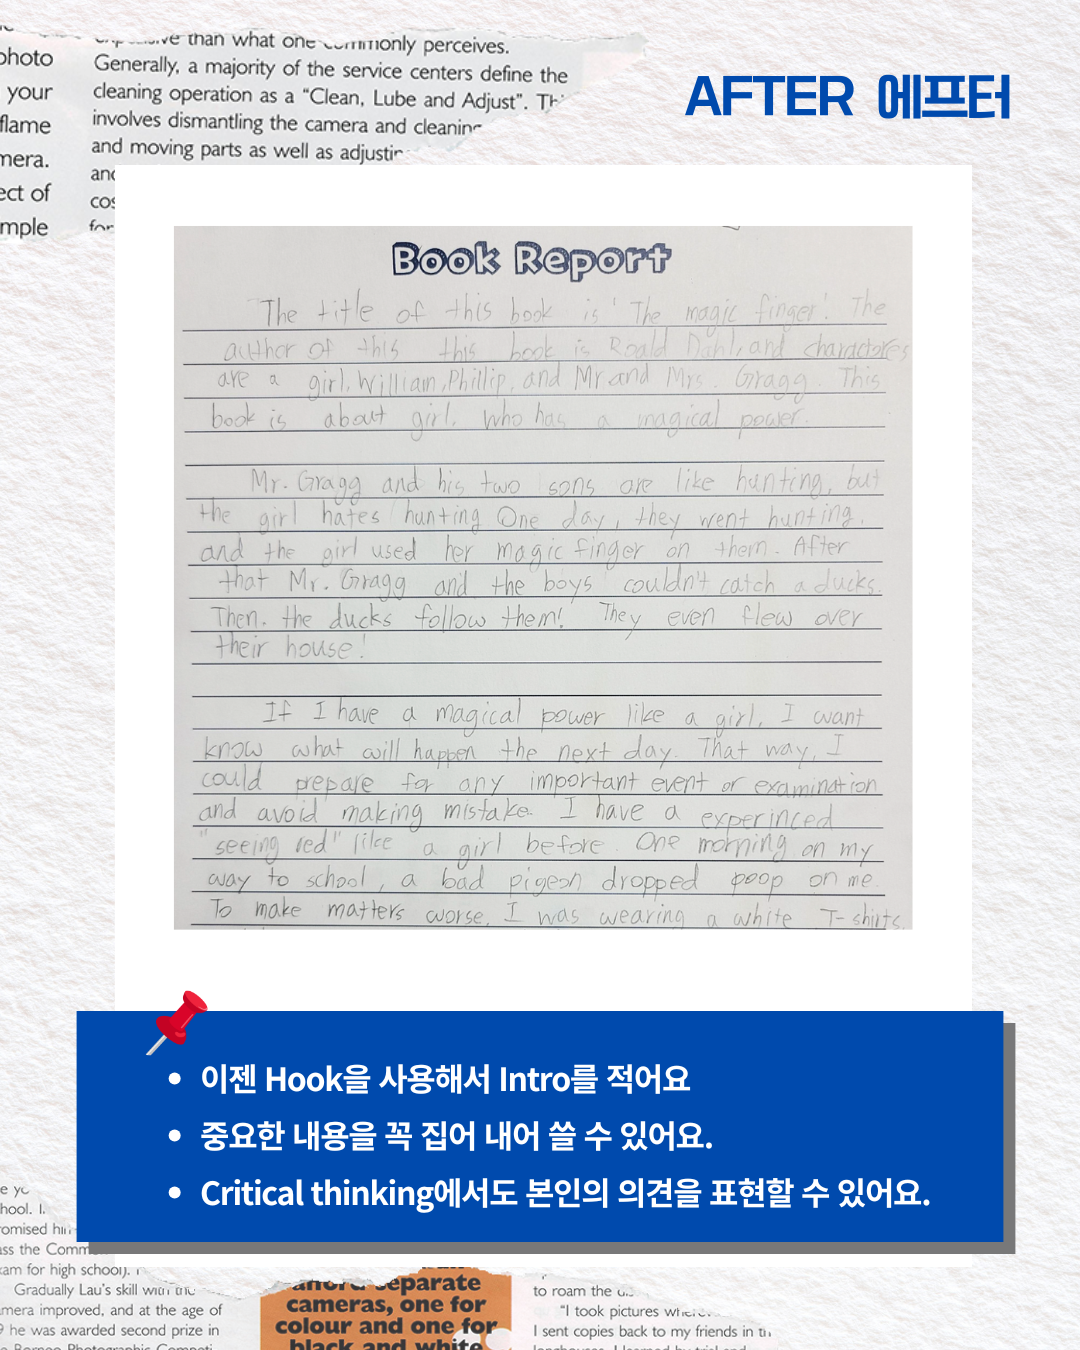 photo
your
flame
mera.
ect of
mple
than what one commonly perceives.
Generally, a majority of the service centers define the
cleaning operation as a “Clean, Lube and Adjust”. Th
involves dismantling the camera and cleaning
and moving parts as well as adjustin
and
cos
for
AFTER 에프터
Book Report
The title of this book is 'The magic finger'. The
author of this this book is Roald Dahl, and charactores
are a girl, William, Phillip, and Mr and Mrs. Gragg. This
book is about girl. who has a magical power.
Mr. Gragg and his two sons are like hunting, but
the girl hates hunting One day, they went hunting.
and the girl used her magic finger on them. After
that Mr. Gragg and the boys couldn't catch a ducks.
Then. the ducks follow them! They even flew over
their house!
If I have a magical power like a girl, I want
know what will happen the next day. That way, I
could prepare for any important event or examination
and avoid making mistake. I have a experinced
"seeing red" like a girl before. One morning on my
way to school, a bad pigeon dropped poop on me.
To make matters worse, I was wearing a white T-shirts.
• 이젠 Hook을 사용해서 Intro를 적어요
• 중요한 내용을 꼭 집어 내어 쓸 수 있어요.
• Critical thinking에서도 본인의 의견을 표현할 수 있어요.
hool. I.
omised him
ss the Comm
am for high school).
Gradually Lau's skill with the
mera improved, and at the age of
9 he was awarded second prize in
afford separate
cameras, one for
colour and one for
black and white
to roam the
“I took pictures where
I sent copies back to my friends in th